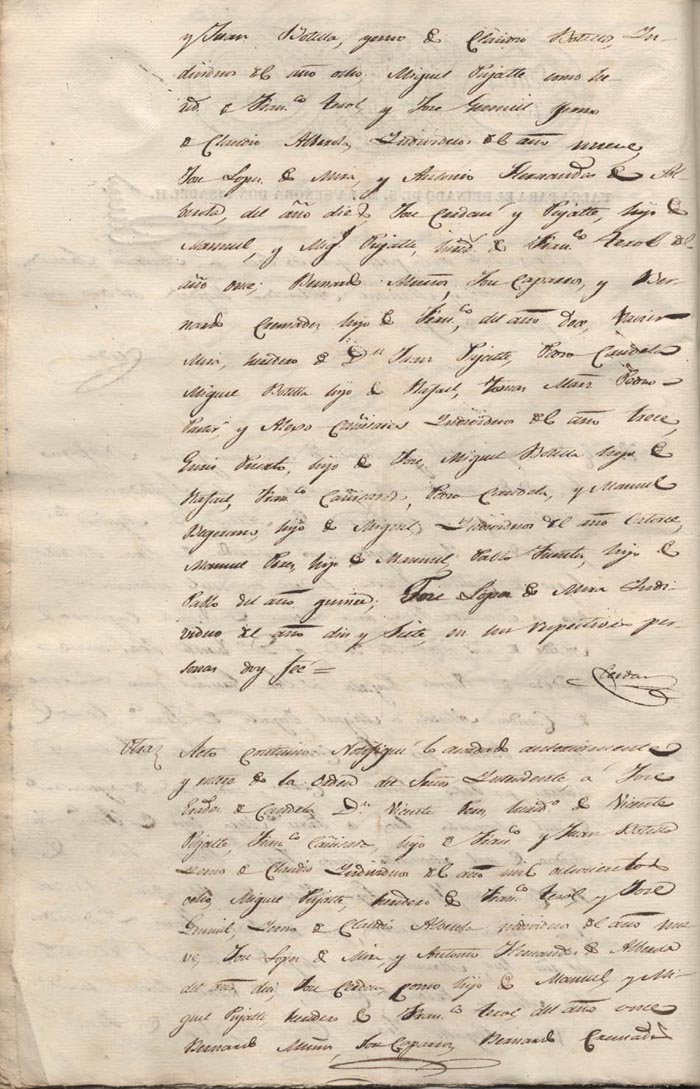 y Juan Botella, yerno de Claudio Botella, In-
dividuos del año ocho. Miguel Pujalte como he-
red.º de Fran.co Terol, y José Gumiel yerno
de Claudio Albero, Individuos del año nueve,
José Lopez de Mira, y Antonio Hernandez de Al-
berola, del año diez, José Cerdan y Pujalte, hijo de
Manuel, y Mig.l Pujalte, hered.º de Fran.co Terol del
año once, Bernardo Muñoz, José Caparros, y Ber-
nardo Cremades hijo de Fran.co, del año doce, Xavier
Mira, heredero de D.n Juan Pujalte, Pedro Candela
Miguel Botella hijo de Rafael, Tomas Pedro
y Alexo Cañizares Individuos del año trece,
Gines Puerto, hijo de José, Miguel Botella hijo de
Rafael, Fran.co Cañizares, Pedro Candela, y Manuel
Bejerano, hijo de Miguel, Individuos del año Catorce,
Manuel Perez, hijo de Manuel, Pablo hijo de
Pablo del año quince, José Lopez de Mira Indi-
viduo del año diez y Siete, en sus respectivas per-
sonas doy feé =
Cerdan
Otra
Acto Continuo Notifiqué lo acordado anteriormente
y de la Orden del Señor Intendente, a José
de Candela D.n Vicente Perez, hered.º de Vicente
Pujalte, Fran.co Cañizares, hijo de Fran.co y Juan Botella
yerno de Claudio Individuos del año mil ochocientos
ocho, Miguel Pujalte, heredero de Fran.co Terol, y José
Gumiel, Yerno de Claudio Albero individuos del año nue-
ve, José Lopez de Mira y Antonio Hernandez de Alberola
del año diez, José Cerdan, como hijo de Manuel, y Mi-
guel Pujalte heredero de Fran.co Terol del año once
Bernardo Muñoz, José Caparros, Bernardo Cremades